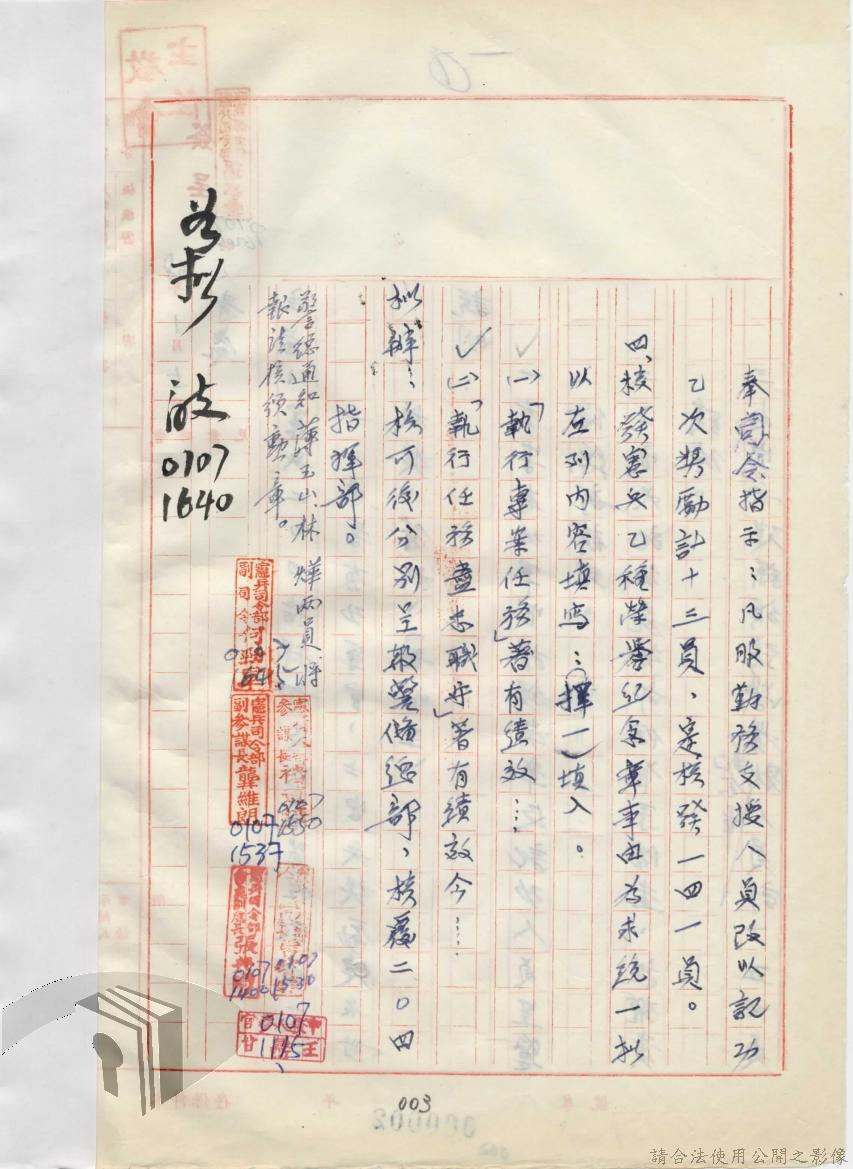 奉司令指示：凡服勤務支援人員改以記功
乙次獎勵計十三員，定核發一四一員。
四、核發憲兵乙種榮譽紀念章事由為求統一擬
以左列內容填寫：（擇一）填入。
㈠「執行專案任務」著有績效…。
㈡「執行任務盡忠職守」著有績效今…
擬辦：核可後分別呈報警備總部、核覆二〇四
指揮部。
警總通知薄玉山、林燁兩員將
報請核頒勳章。
憲兵司令部
副司令何
0107
1645
憲兵司令部
副參謀長龔維朗
0107
1537
參謀長
0107
1550
張
0107
1400
0107
1530
0107
1115
如擬
0107
1640
003
請合法使用公開之影像